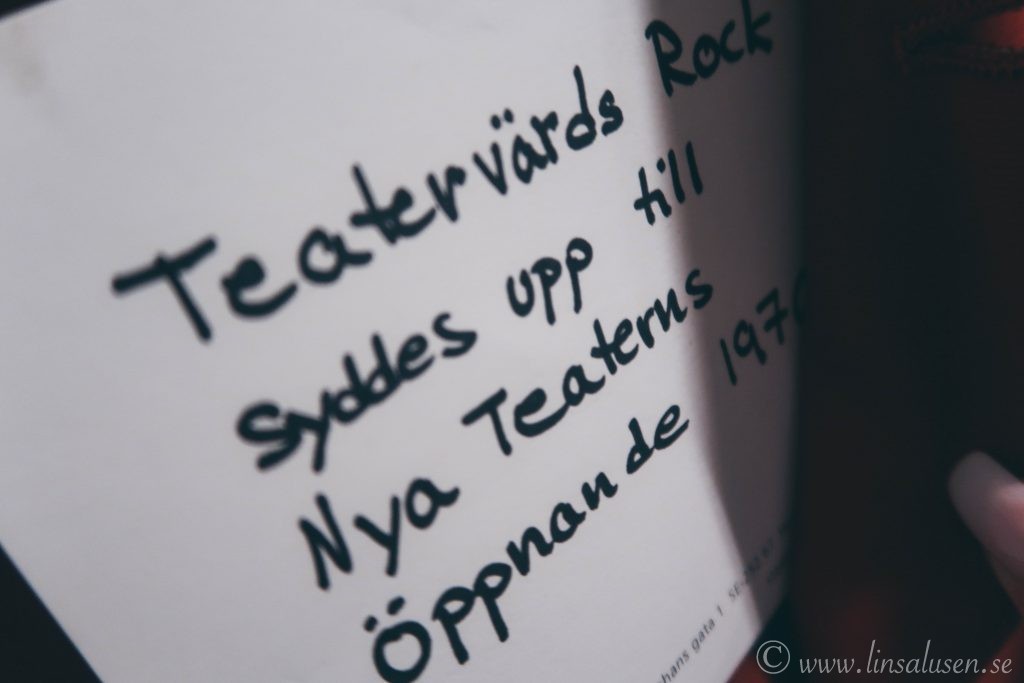 Teatervärds Rock
syddes upp till
Nya Teaterns
Öppnande
hans gata 1
© www.linsalusen.se